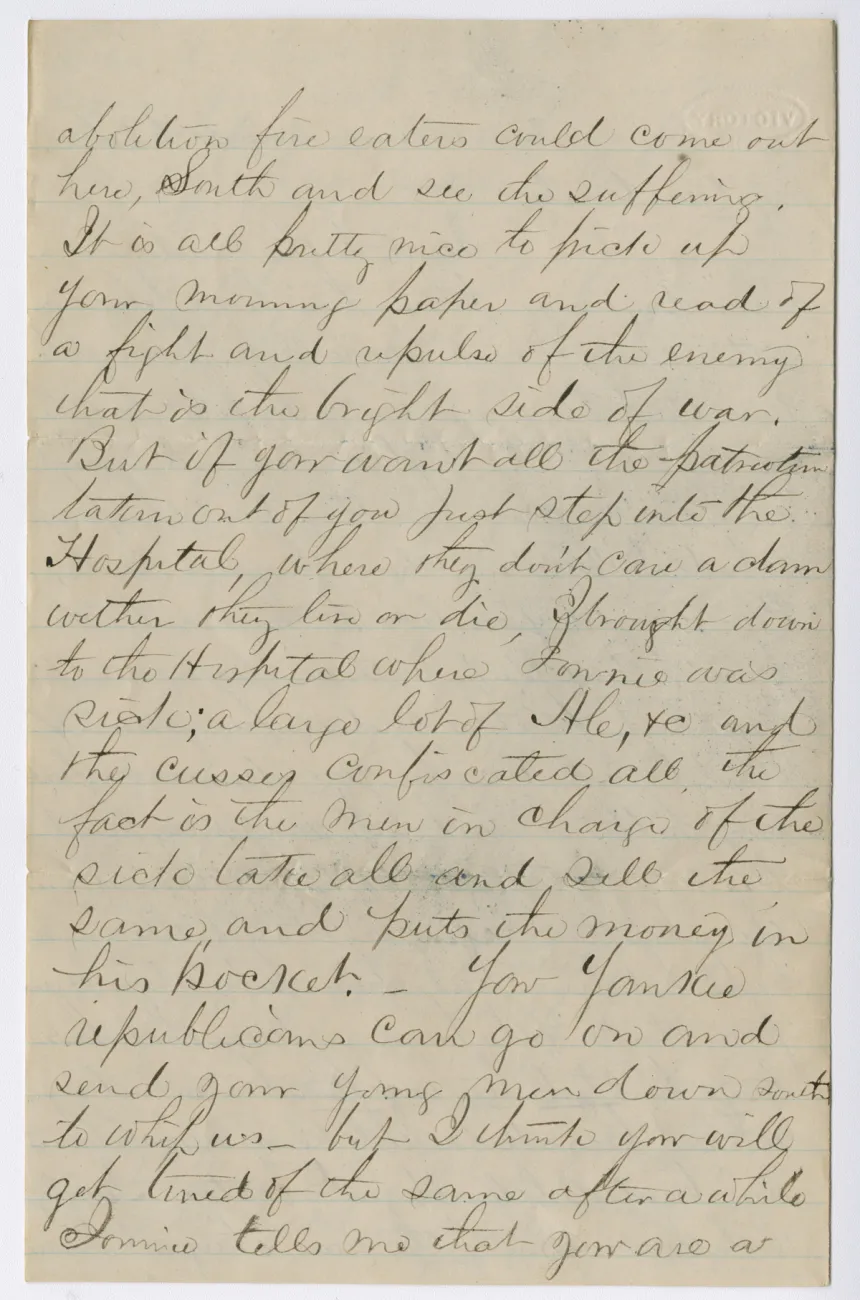 abolition fire eaters could come out
here, South and see the suffering.
It is all pretty nice to pick up
your morning paper and read of
a fight and repulse of the enemy
that is the bright side of war.
But if you want all the patriotism
taken out of you just step into the
Hospital, where they don't care a dam
wether they live or die, I brought down
to the Hospital where Tommie was
sick; a large lot of Ale, &c and
the cusses confiscated all, the
fact is the men in charge of the
sick take all and sell the
same, and puts the money in
his pocket. – You Yankie
republicans can go on and
send your yong men down south
to whip us – but I think you will
get tired of the same after a while
Tommie tells me that you are a